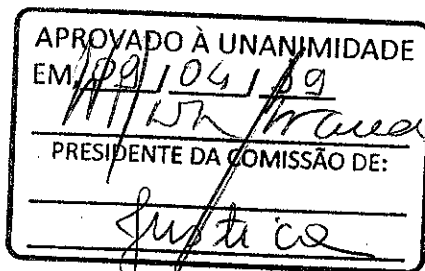 APROVADO À UNANIMIDADE
EM 09 / 04 / 19
PRESIDENTE DA COMISSÃO DE:
Justiça